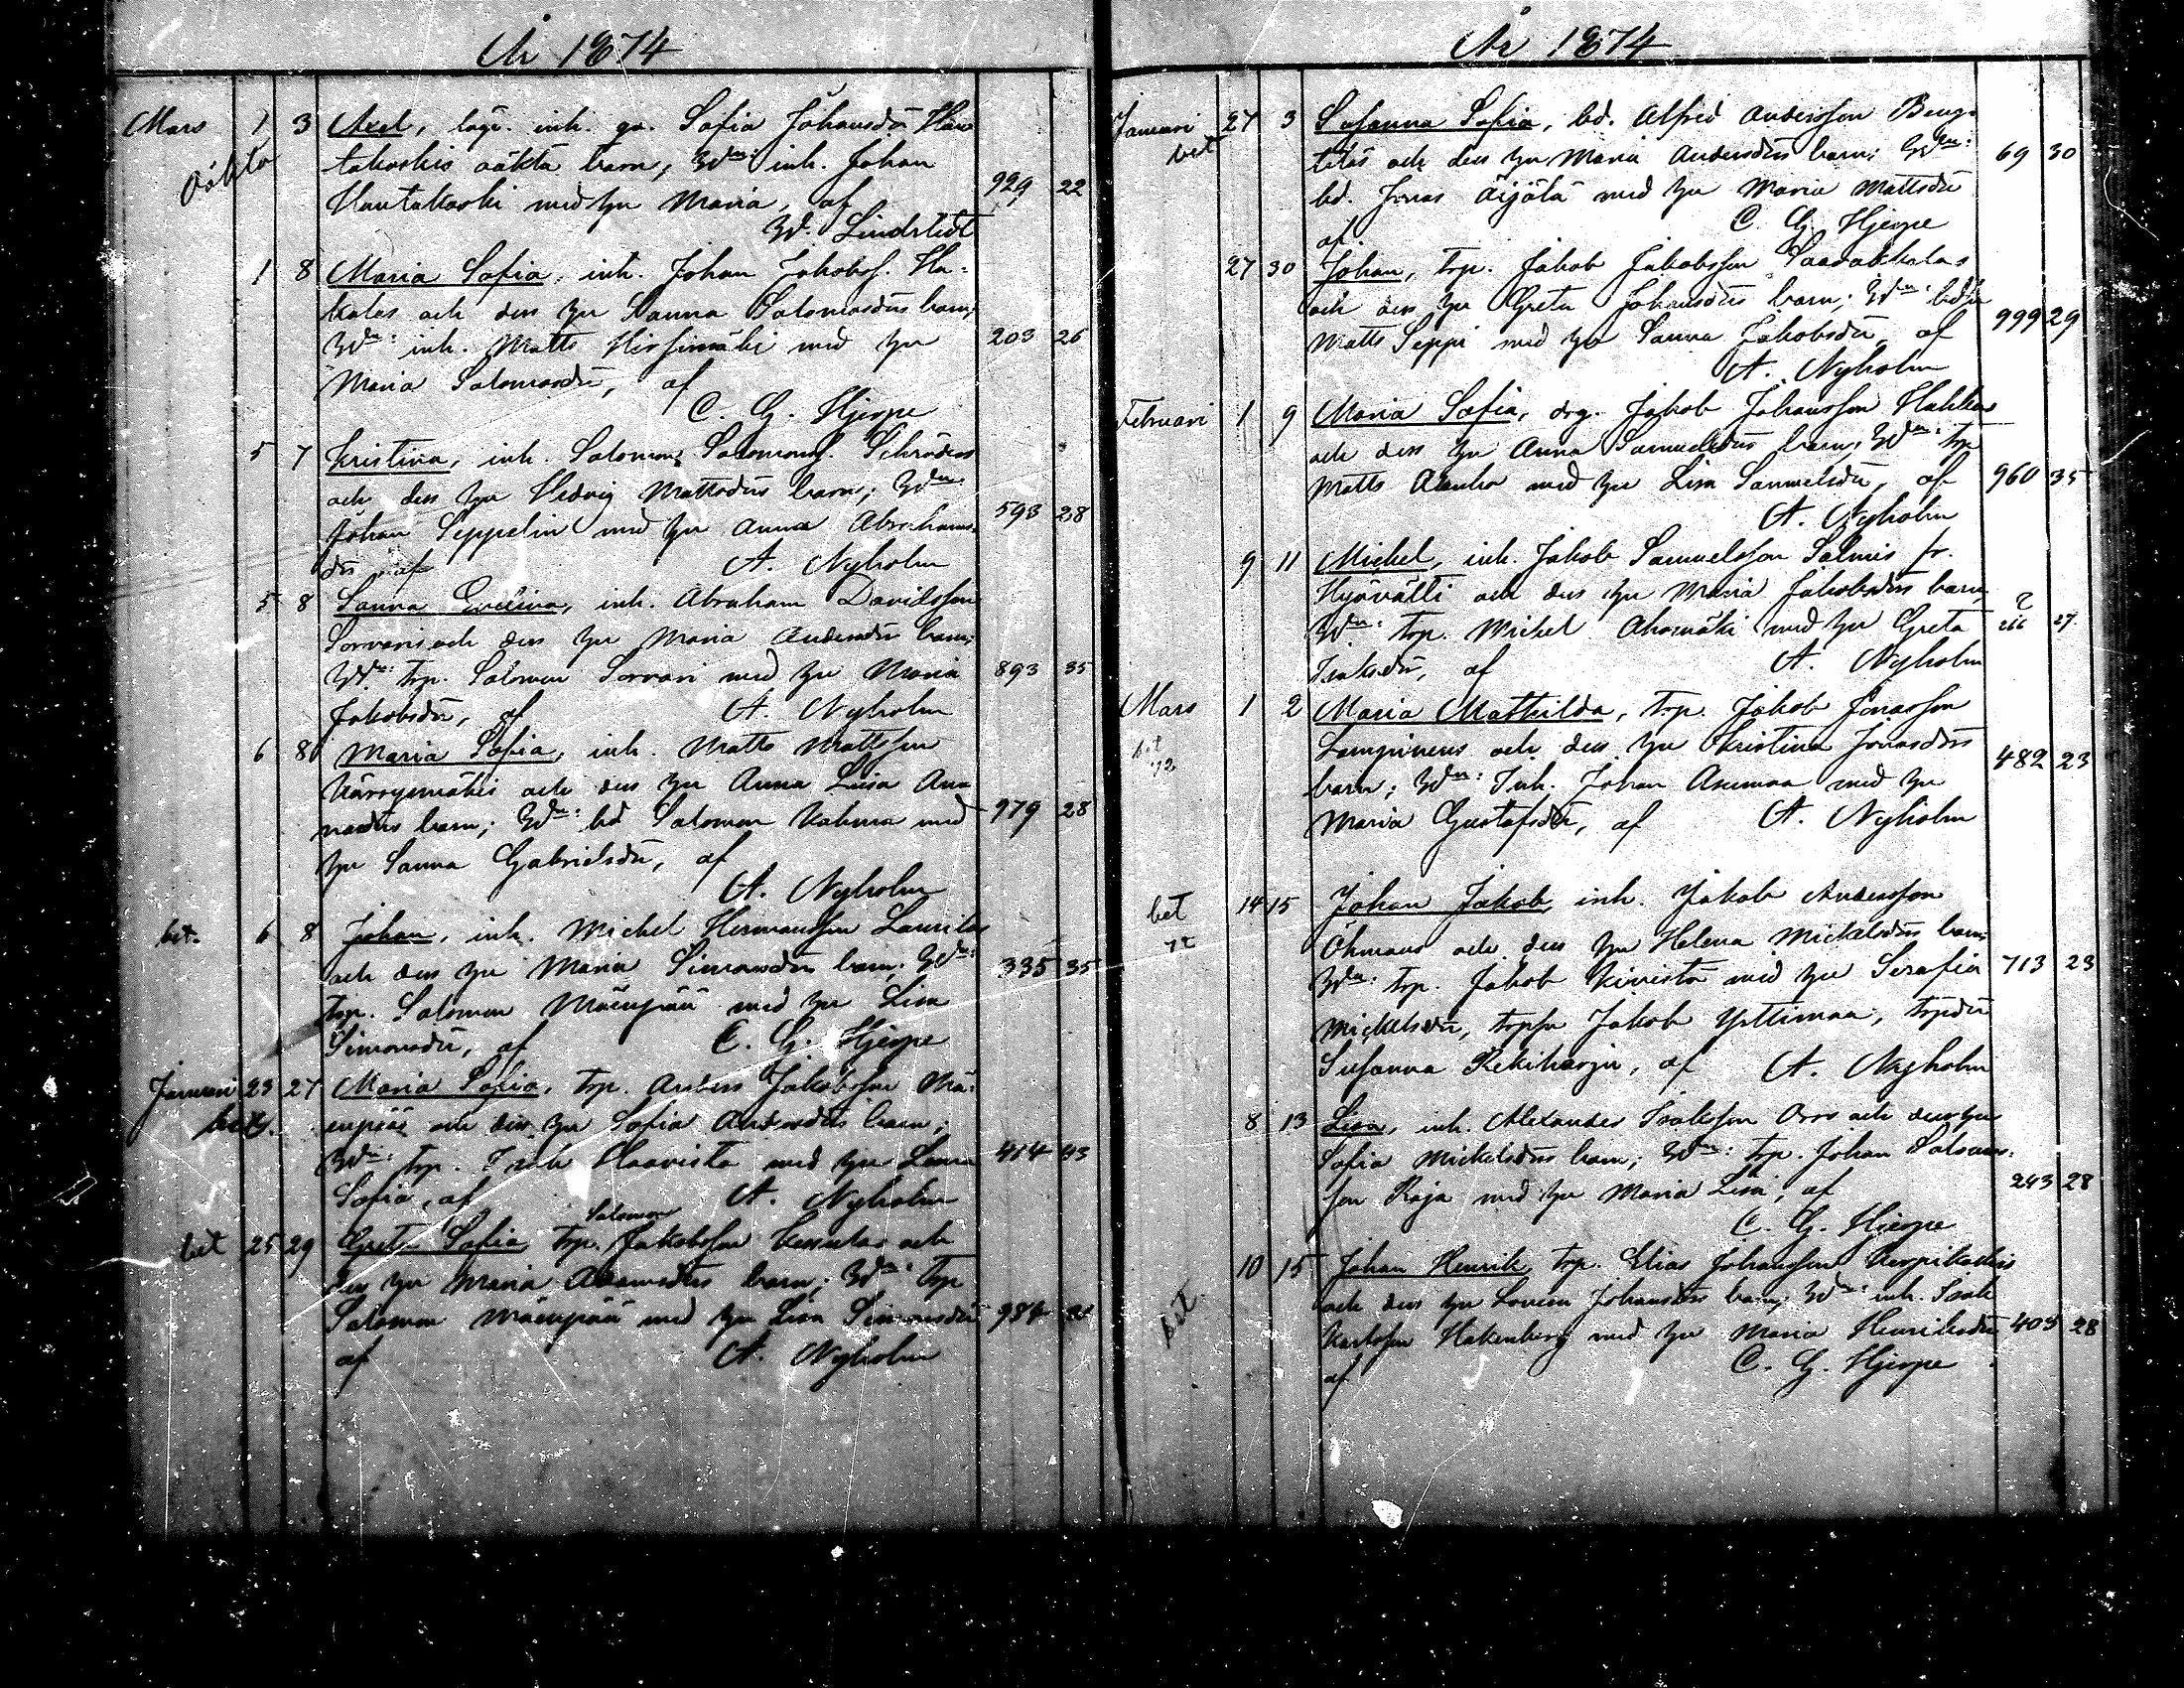 År 1874
Mars 1 3 Axel, lägr. inh. ga. Sofia Johansdr Hau
oäkta takoskis oäkta barn; Wdn: inh. Johan
Hautakoski med hu Maria, af 929 22
W. Lindstedt
1 8 Maria Sofia, inh. Johan Jakobss. Ha-
kalas och dess hu Sanna Salomonsdrs barn;
Wdn: inh. Matts Hirsimäki med hu 203 26
Maria Salomonsdr, af
C. G. Hjerpe
5 7 Kristina, inh. Salomon Salomonss. Schröders
och dess hu Hedvig Mattsdrs barn; Wdn:
Johan Seppelin med hu Anna Abrahams- 593 28
dr af A. Nyholm
5 8 Sanna Evelina, inh. Abraham Davidsson
Sorvaris och dess hu Maria Andersdrs barn;
Wdn: trp. Salomon Sorvari med hu Maria 893 35
Jakobsdr, af A. Nyholm
6 8 Maria Sofia, inh. Matts Mattsson
Kärrynmäkis och dess hu Anna Lisa Ana
niasdrs barn; Wdn: bd Salomon Kahma med 979 28
hu Sanna Gabrielsdr, af
A. Nyholm
bet. 6 8 Johan, inh. Michel Hermansson Laurilas
och dess hu Maria Simonsdrs barn; Wdn: 335 35
trp. Salomon Mäenpää med hu Lisa
Simonsdr, af C. G. Hjerpe
Januari 23 27 Maria Sofia, trp. Anders Jakobsson Mä-
bet. enpääs och dess hu Sofia Andersdrs barn;
Wdn: trp. Isak Haavisto med hu Laura 414 43
Sofia, af A. Nyholm
Salomon
bet 25 29 Greta Sofia, trp. Jakobsson och
dess hu Maria Adamsdrs barn; Wdn: trp
Salomon Mäenpää med hu Lisa Simonsdr 984
af A. Nyholm
År 1874
Januari 27 3 Susanna Sofia, bd. Alfred Andersson Beng-
bet tiläs och dess hu Maria Andersdrs barn; Wdn: 69 30
bd. Jonas Äijälä med hu Maria Mattsdr
af. C. G. Hjerpe
27 30 Johan, trp. Jakob Jakobsson
och dess hu Greta Johansdrs barn; Wdn:
Matts Seppi med hu Sanna Jakobsdr, af 999 29
A. Nyholm
Februari 1 9 Maria Sofia, drg. Jakob Johansson Hakkas
och dess hu Anna Samuelsdrs barn; Wdn: trp
Matts med hu Lisa Samuelsdr, af 960 35
A. Nyholm
9 11 Michel, inh. Jakob Samuelsson Salmis fr.
Hyövälti och dess hu Maria Jakobsdrs barn;
Wdn: trp. Michel Ahomäki med hu Greta ? 27
Isaksdr, af A. Nyholm
Mars 1 2 Maria Mathilda, trp. Jakob Jonasson
bet Lampinens och dess hu Kristina Jonasdrs
72 barn; Wdn: Inh. Johan Asumaa med hu 482 23
Maria Gustafsdr, af A. Nyholm
bet 14 15 Johan Jakob, inh. Jakob Andersson
Öhmans och dess hu Helena Mickelsdrs barn;
Wdn: trp. Jakob Kivistö med hu Serafia 713 23
Mickelsdr, trpsn Jakob Yrttimaa, trpdr
Susanna Rekiharju, af A. Nyholm
8 13 Lisa, inh. Alexander Isaksson Orro och dess hu
Sofia Mickelsdrs barn; Wdn: trp. Johan Salomons-
son Raja med hu Maria Lisa, af 243 28
C. G. Hjerpe
10 15 Johan Henrik, trp. Elias Johansson Kerpikoskis
bet och dess hu Lovisa Johansdrs barn; Wdn: inh. Isak
Karlsson Hakenberg med hu Maria Henriksdr 403 28
af C. G. Hjerpe